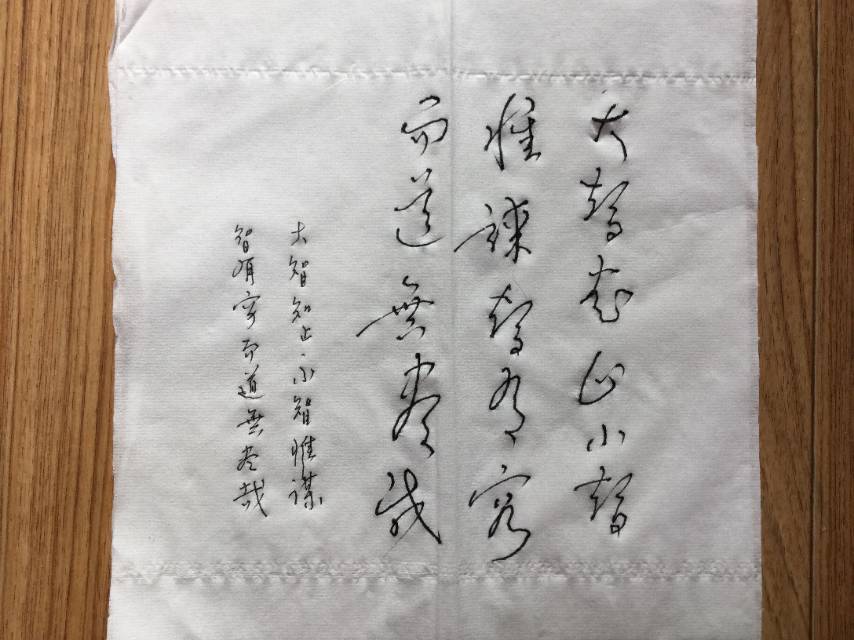 大智知止小智
惟謀智有窮
而道無盡哉
大智知止小智惟謀
智有穷而道無尽哉